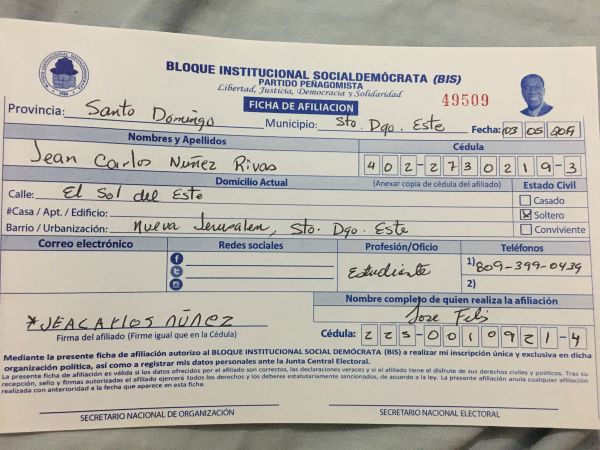 BLOQUE INSTITUCIONAL SOCIALDEMÓCRATA (BIS)
PARTIDO PEÑAGOMISTA
Libertad, Justicia, Democracia y Solidaridad
FICHA DE AFILIACION
49509
Provincia: Santo Domingo Municipio: Sto. Dgo. Este Fecha: 03 05 2019
Nombres y Apellidos Cédula
Jean Carlos Nuñez Rivas 402-2730219-3
Domicilio Actual (Anexar copia de cédula del afiliado) Estado Civil
Calle: El Sol del Este Casado
#Casa / Apt. / Edificio: Soltero
Barrio / Urbanización: Nueva Jerusalem, Sto. Dgo. Este Conviviente
Correo electrónico Redes sociales Profesión/Oficio Teléfonos
Estudiante 1) 809-399-0439
2)
Nombre completo de quien realiza la afiliación
Jose Feliz
*JEACARlos NÚÑEZ
Firma del afiliado (Firme igual que en la Cédula) Cédula: 223-0010921-4
Mediante la presente ficha de afiliación autorizo al BLOQUE INSTITUCIONAL SOCIAL DEMÓCRATA (BIS) a realizar mi inscripción única y exclusiva en dicha
organización política, así como a registrar mis datos personales ante la Junta Central Electoral.
La presente ficha de afiliación es válida si los datos ofrecidos por el afiliado son correctos, las declaraciones veraces y si el afiliado tiene el disfrute de sus derechos civiles y políticos. Tras su
recepción, sello y firmas autorizadas el afiliado ejercerá todos los derechos y los deberes estatutariamente sancionados, de acuerdo a la ley. La presente afiliación anula cualquier afiliación
realizada con anterioridad a la fecha que aparece en esta ficha.
SECRETARIO NACIONAL DE ORGANIZACIÓN SECRETARIO NACIONAL ELECTORAL